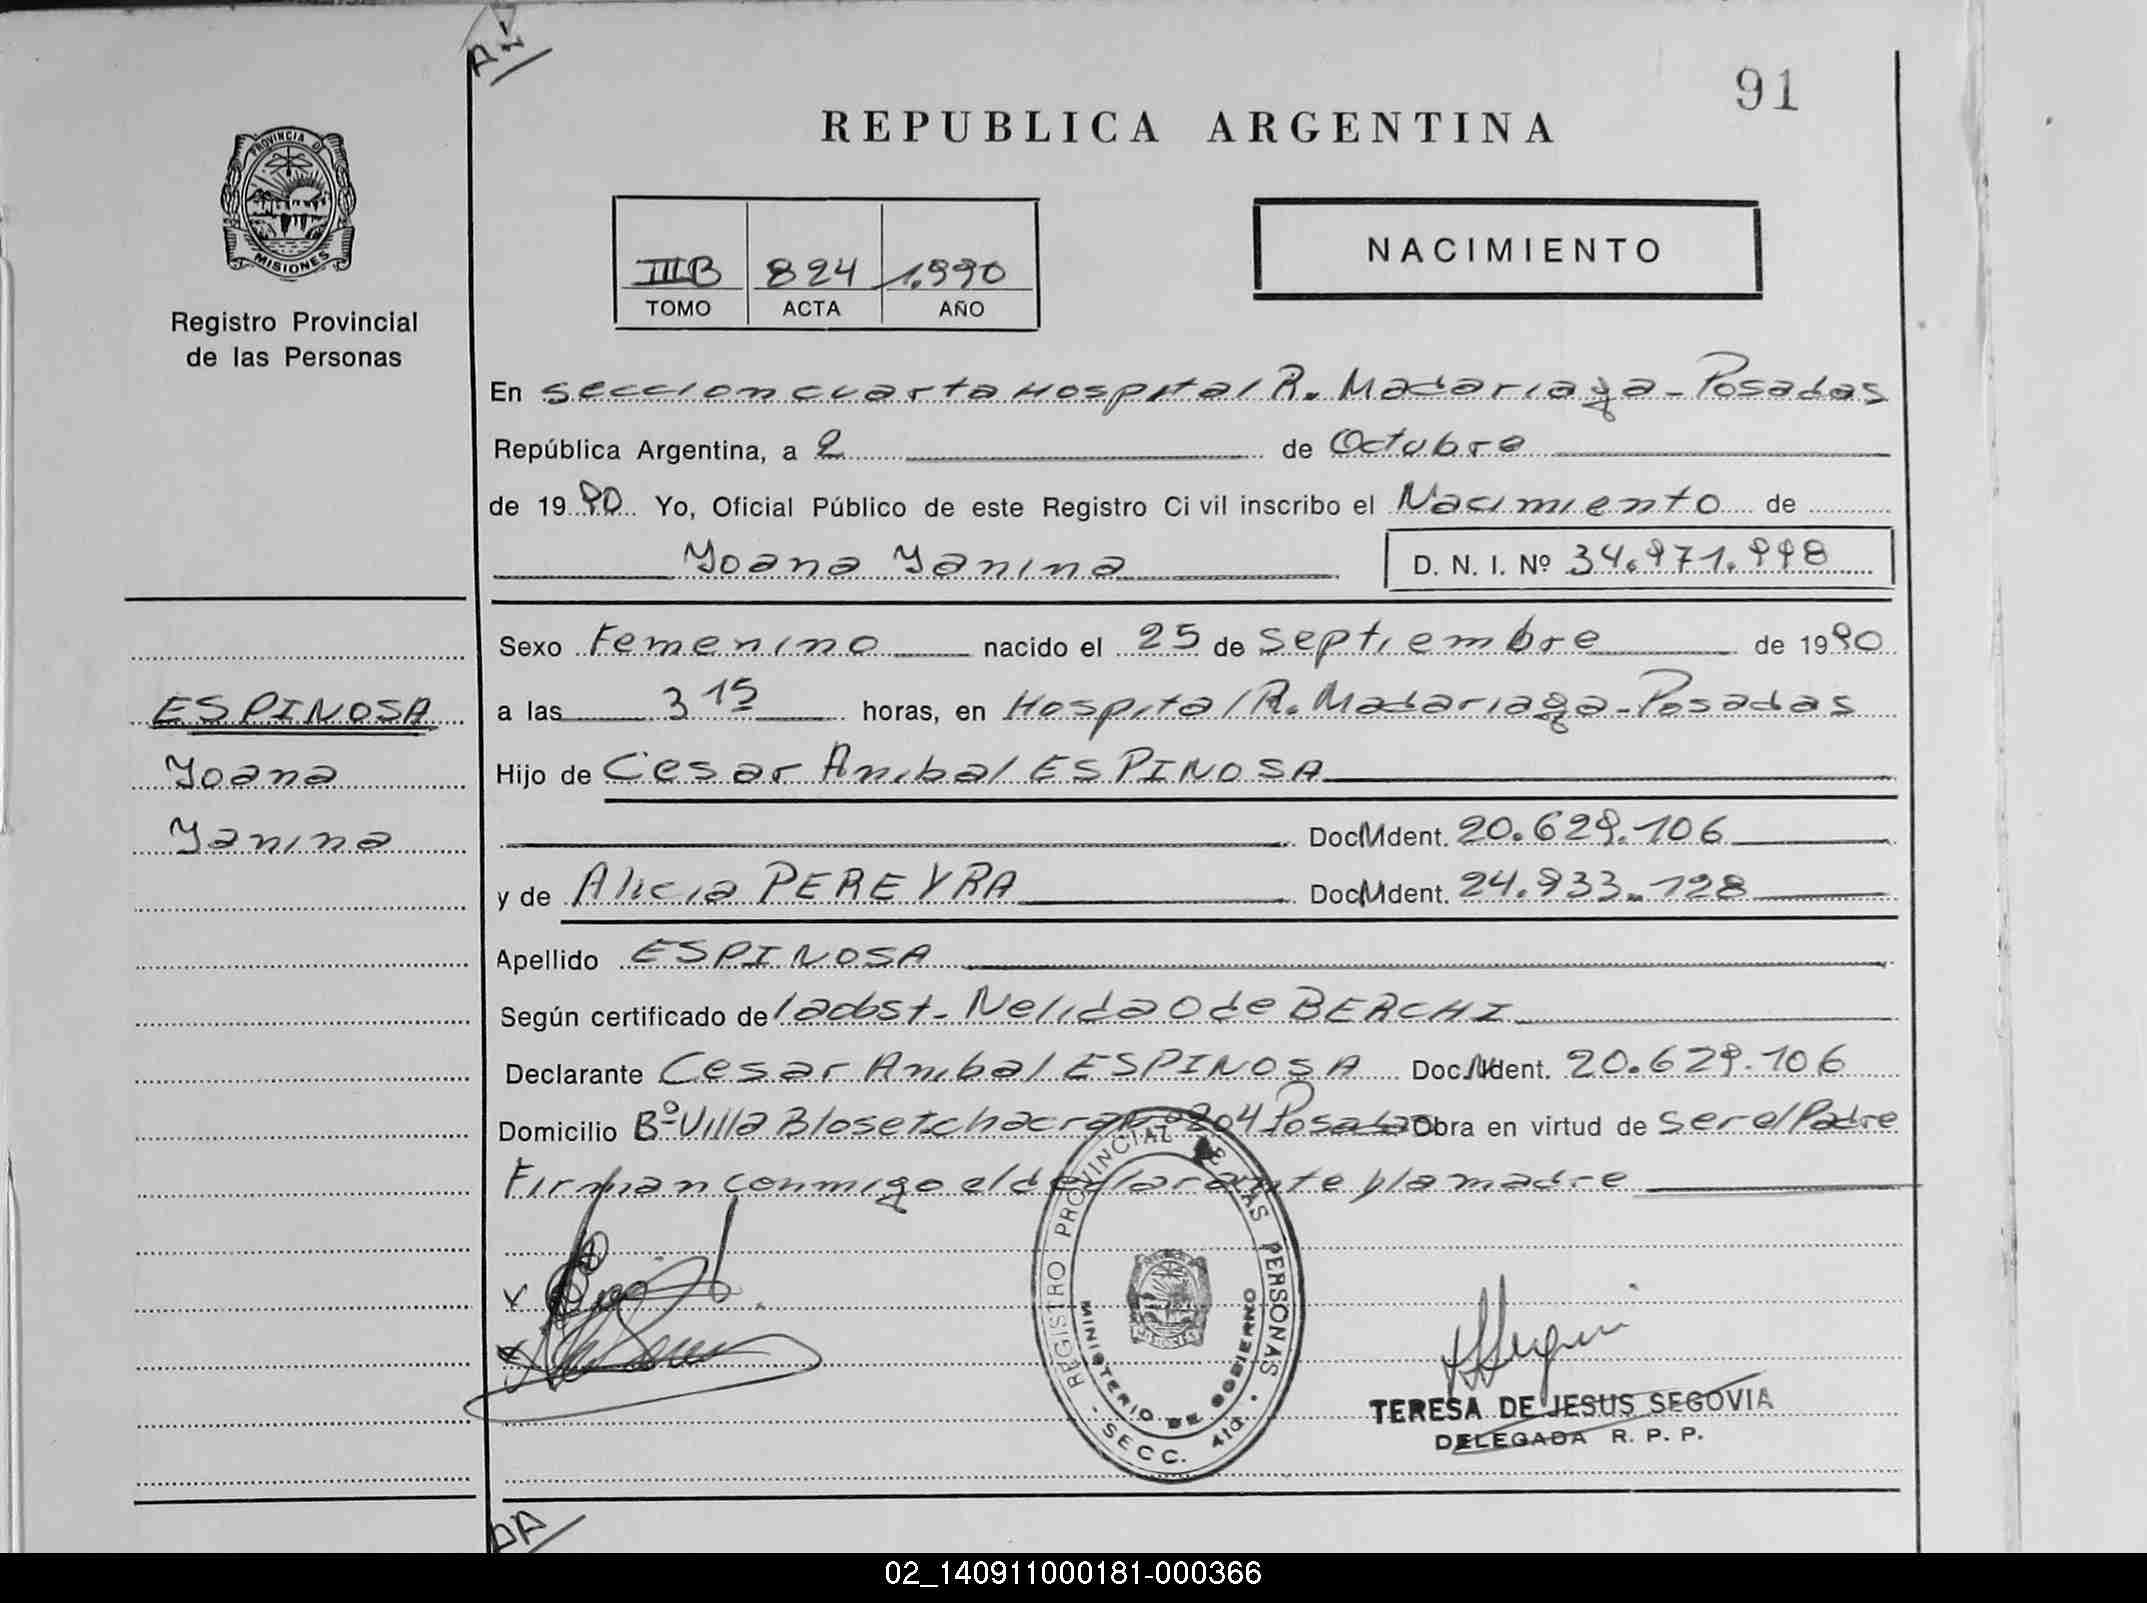 91
REPUBLICA ARGENTINA
PROVINCIA DE
MISIONES
Registro Provincial
de las Personas
IIIB 824 1.990
TOMO ACTA AÑO
NACIMIENTO
En seccion cuarta Hospital R. Madariaga - Posadas
República Argentina, a 2 de Octubre
de 1990 Yo, Oficial Público de este Registro Civil inscribo el Nacimiento de
Yoana Yanina D. N. I. Nº 34.971.998
Sexo Femenino nacido el 25 de Septiembre de 1990
ESPINOSA
Yoana
Yanina
a las 3 15 horas, en Hospital R. Madariaga - Posadas
Hijo de Cesar Anibal ESPINOSA
Doc. Ident. 20.629.106
y de Alicia PEREYRA Doc. Ident. 24.933.128
Apellido ESPINOSA
Según certificado de la obst. Nelida O de BERCHI
Declarante Cesar Anibal ESPINOSA Doc. Ident. 20.629.106
Domicilio Bº Villa Bloset chacra 204 Posadas Obra en virtud de ser el Padre
Firman conmigo el declarante y la madre
REGISTRO PROVINCIAL DE LAS PERSONAS
MINISTERIO DE GOBIERNO
SECC. 4ta.
TERESA DE JESUS SEGOVIA
DELEGADA R. P. P.
02_140911000181-000366